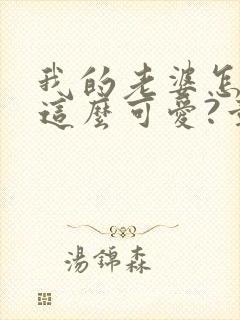 我的老婆怎
這麼可愛?
湯錦森